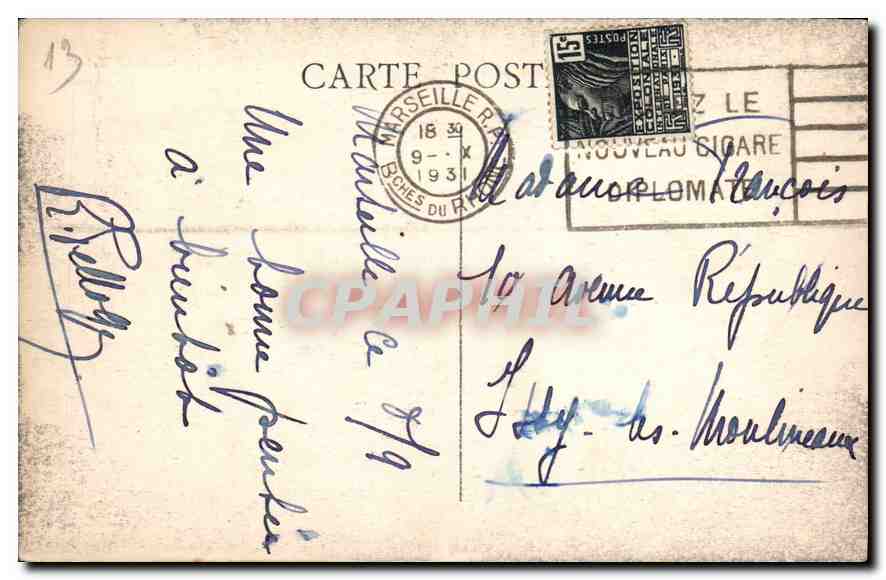 13
CARTE POST
MARSEILLE R.P.
18 30
9 - X
1931
BCHES DU RHONE
15c
POSTES
EXPOSITION
COLONIALE
PARIS
1931
Z LE
NOUVEAU CIGARE
DIPLOMATE
Marseille ce 8/9
Une bonne pensée
à bientôt
Madame François
19 avenue République
Issy-les-Moulineaux
CPAPHIL